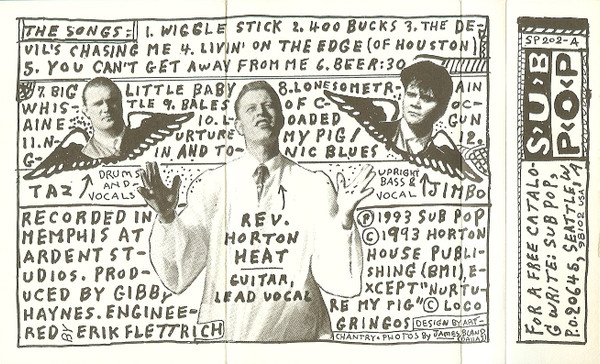 THE SONGS: 1. WIGGLE STICK 2. 400 BUCKS 3. THE DE-
VIL'S CHASING ME 4. LIVIN' ON THE EDGE (OF HOUSTON)
5. YOU CAN'T GET AWAY FROM ME 6. BEER:30
7. BIG LITTLE BABY 8. LONESOME TR- AIN
WHIS- TLE 9. BALES OF C- OC-
AINE 10. L- OADED GUN
11. N- URTURE MY PIG! 12.
G- IN AND TO- NIC BLUES
TAZ
DRUMS
AND-
VOCALS
UPRIGHT
BASS &
VOCAL
JIMBO
REV.
HORTON
HEAT
GUITAR,
LEAD VOCAL
RECORDED IN
MEMPHIS AT
ARDENT ST-
UDIOS. PROD-
UCED BY GIBBY
HAYNES. ENGINEE-
RED BY ERIK FLETTRICH
Ⓟ 1993 SUB POP
© 1993 HORTON
HOUSE PUBLI-
SHING (BMI), E-
XCEPT "NURTU-
RE MY PIG" © LOCO
GRINGOS
DESIGN BY ART-
CHANTRY • PHOTOS BY JAMES BLAND
(DALLAS)
SP202-A
S•U•B
P•O•P
FOR A FREE CATALO-
G WRITE: SUB POP,
P.O. 20645, SEATTLE, WA
98102 USA